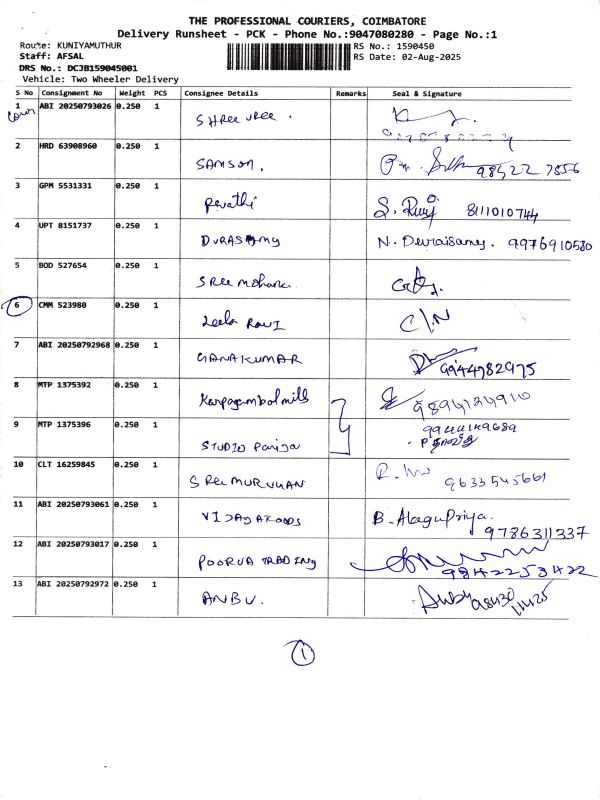 THE PROFESSIONAL COURIERS, COIMBATORE
Delivery Runsheet - PCK - Phone No.:9047080280 - Page No.:1
Route: KUNIYAMUTHUR RS No.: 1590450
Staff: AFSAL RS Date: 02-Aug-2025
DRS No.: DCJB159045001
Vehicle: Two Wheeler Delivery
S No Consignment No Weight PCS Consignee Details Remarks Seal & Signature
1 ABI 20250793026 0.250 1 SHREE
2 HRD 63908960 0.250 1 SAMSON. 98422 7856
3 GPM 5531331 0.250 1 Revathi 8111010744
4 UPT 8151737 0.250 1 DURASAMY N. Devraisamy. 9976910580
5 BOD 527654 0.250 1 SREE
6 CMM 523980 0.250 1 Leela RAVI C/N
7 ABI 20250792968 0.250 1 GANAKUMAR 9944782975
8 MTP 1375392 0.250 1 Karpagambal mills
9 MTP 1375396 0.250 1 STUDIO
10 CLT 16259845 0.250 1 SREE MURUGAN 9633545661
11 ABI 20250793061 0.250 1 VIJAYA FOODS B. AlaguPriya. 9786311337
12 ABI 20250793017 0.250 1 POORVA TRADING 9842253422
13 ABI 20250792972 0.250 1 ANBU.
1